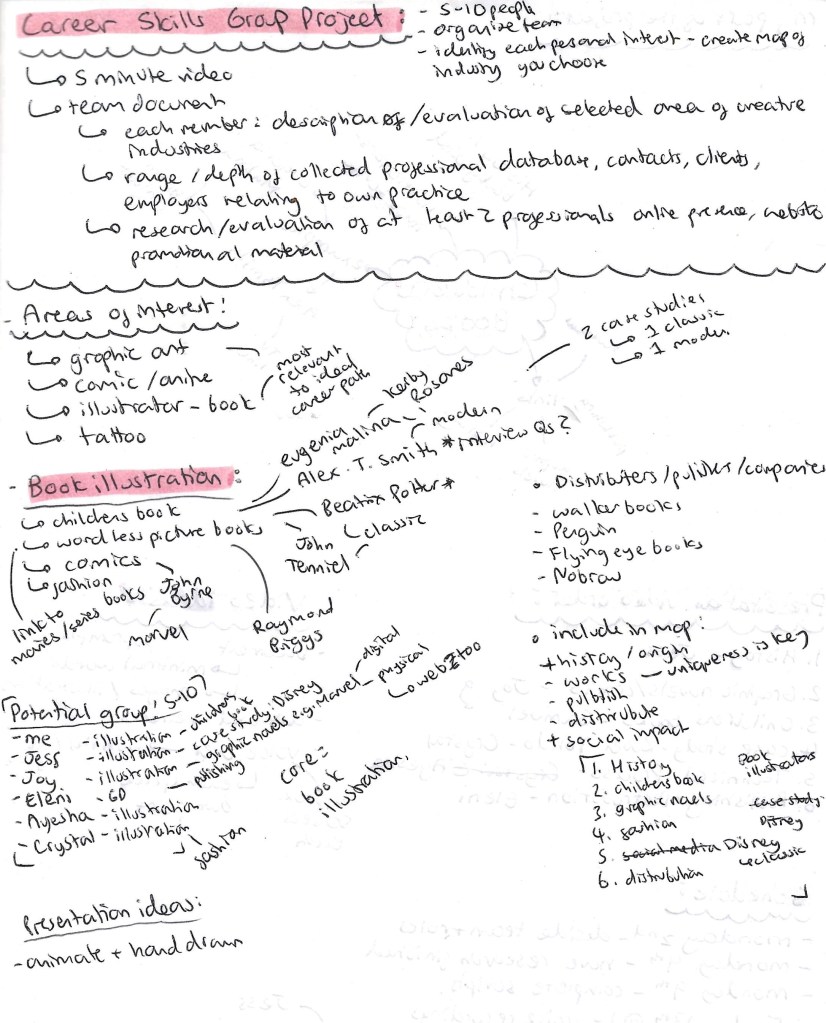 Career Skills Group Project:
- 5-10 people
- organize team
- identify each personal interest - create map of
industry you choose
↳ 5 minute video
↳ team document
↳ each member: description of/evaluation of selected area of creative
industries
↳ range/depth of collected professional database, contacts, clients,
employers relating to own practice
↳ research/evaluation of at least 2 professionals online presence, website
promotional material
- Areas of interest!
↳ graphic art
↳ comic/anime
↳ illustrator - book
↳ tattoo
most
relevant
to ideal
career path
2 case studies
↳ 1 classic
↳ 1 modern
- Book illustration:
↳ childrens book
↳ wordless picture books
↳ comics
↳ fashion
books
link to
movies/series
John
Byrne
marvel
Raymond
Briggs
eugenia
malina
Kerby
Rosanes
Alex. T. Smith * interview Qs?
modern
Beatrix Potter *
John
Tenniel
classic
• Distributers/publisher/companies
- walker books
- Penguin
- Flying eye books
- Nobrow
• include in map:
+ history/origin
- works - uniqueness is key
- publish
- distribute
+ social impact
1. History
2. childrens book
3. graphic novels
4. fashion
5. social media Disney
6. distribution
Book
illustrators
case study
Disney
↳ classic
Potential group: 5-10?
- me - illustration - childrens book
- Jess - illustration - case study: Disney
- Joy - illustration - graphic novels e.g. Marvel - digital
physical
↳ web too
- Eleni - GD - publishing
- Ayesha - illustration
- Crystal - illustration
fashion
core =
book
illustration.
Presentation ideas:
- animate + hand drawn